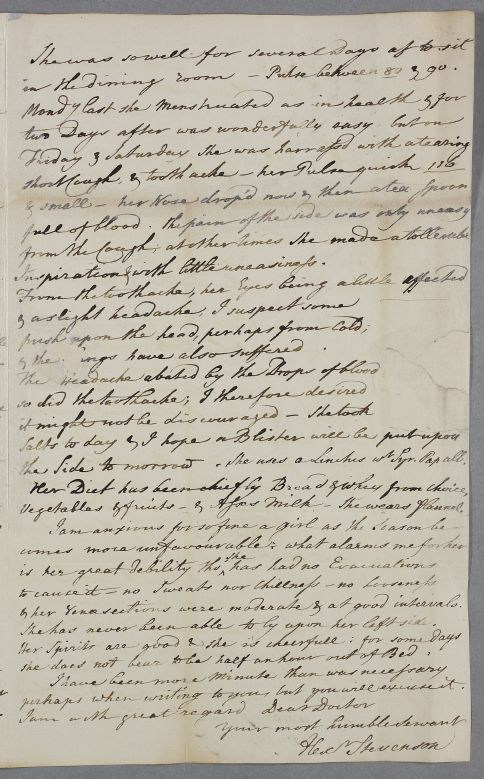 She was so well for several Days as to sit
in the dining room – Pulse between 80 & 90.
Mondy last she Menstruated as in health & for
two Days after was wonderfully easy but on
Friday & Saturday She was harrass'd with a tearing
short Cough, & toothache – her Pulse quick 120
& small – her Nose drop'd now & then a tea Spoon
full of blood. the pain of the side was only uneasy
from the Cough; at other times She made a tollerable
Inspiration & with little uneasiness.
From the toothache, her Eyes being a little affected
& a slight headache, I suspect some
push upon the head, perhaps from Cold;
& the ngs have also suffered.
The Headache abated by the Drops of blood
so did the toothache; I therefore desired
it might not be discouraged – She took
Salts to day & I hope a Blister will be put upon
the Side to morrow. She uses a Linctus wt Syr. Pap alb.
Her Diet has been chiefly Bread & Whey from choice,
Vegetables & fruits – & Asses Milk – She wears Flannel.
I am anxious for so fine a girl as the Season be-
comes more unfavourable: what alarms me for her
is her great debility tho' she has had no Evacuations
to cause it – no Sweats nor Chillness – no Looseness
& her Venæsections were moderate & at good intervals.
She has never been able to ly upon her left side.
Her Spirits are good & she is cheerfull: for some days
she does not bear to be half an hour out of Bed.
I have been more Minute than was necessary
perhaps when writing to you, but you will excuse it.
I am with great regard Dear Doctor
Your most humble Servant
Alexr Stevenson